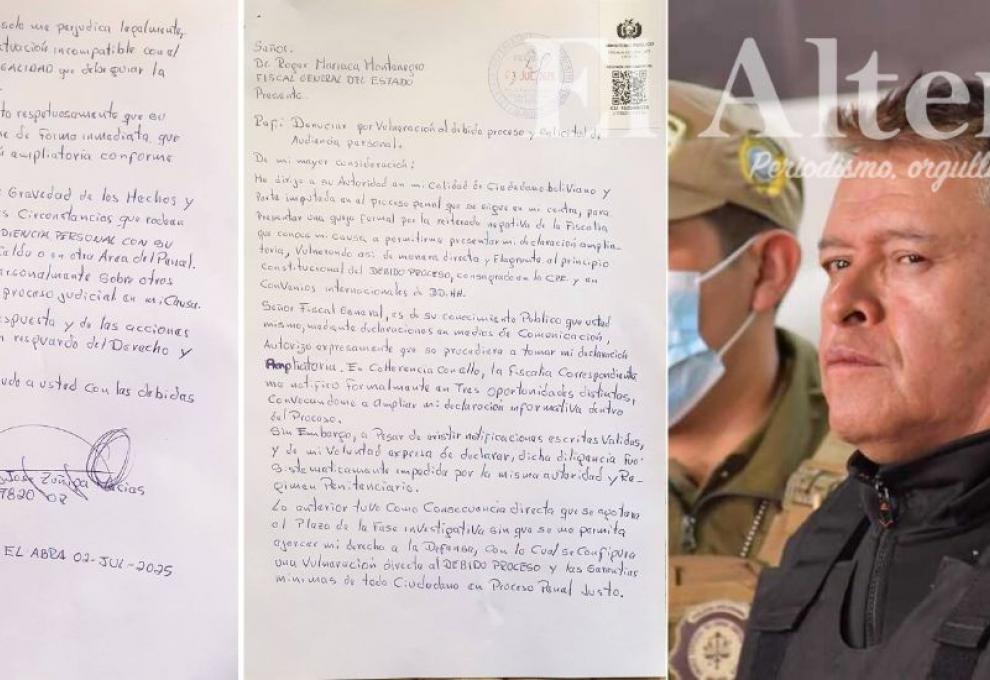 solo me perjudica legalmente,
actuación incompatible con el
EGALIDAD que debe guiar la
to respetuosamente que su
ne de forma inmediata que
ampliatoria conforme
Gravedad de los Hechos y
s Circunstancias que rodean
DIENCIA PERSONAL CON SU
caldu o en otra Area del Penal.
ersonalmente sobre otros
proceso judicial en mi Causa.
espuesta y de las acciones
n resguardo del Derecho y
udo a usted con las debidas
José Zuñiga Macias
7820 02
EL ABRA 02-JUL-2025
Señor.
Dr. Roger Mariaca Montenegro
FISCAL GENERAL DEL ESTADO
Presente
MINISTERIO PÚBLICO
03 JUL 2025
Ref: Denunciar por Vulneración al debido proceso y solicitud de
Audiencia personal.
De mi mayor consideración:
Me dirijo a su Autoridad en mi Calidad de Ciudadano boliviano y
Parte imputada en el proceso penal que se sigue en mi contra, para
Presentar una queja formal por la reiterada negativa de la Fiscalia
que conoce mi Causa, a permitirme presentar mi declaración amplia-
toria, Vulnerando así de manera directa y Flagrante al principio
Constitucional del DEBIDO PROCESO, consagrado en la CPE. y en
Convenios internacionales de DD.HH.
Señor Fiscal General, es de su conocimiento Público que usted
mismo, mediante declaraciones en medios de Comunicación,
Autorizo expresamente que se procediera a tomar mi declaración
Ampliatoria. En Coherencia con ello, la Fiscalia Correspondiente
me notificó formalmente en Tres oportunidades distintas,
Convocandome a Ampliar mi declaración informativa dentro
del Proceso.
Sin Embargo, a Pesar de existir notificaciones escritas Validas,
y de mi Voluntad expresa de declarar, dicha diligencia fue
Sistematicamente impedida por la misma autoridad y Re-
gimen Penitenciario.
Lo anterior tuvo Como Consecuencia directa que se agotara
el Plazo de la Fase investigativa sin que se me permita
ejercer mi derecho a la Defensa, con lo Cual se Configura
una Vulneración directa al DEBIDO PROCESO y las Garantias
minimas de todo Ciudadano en Proceso Penal Justo.
El Alter
Periodismo, orgull